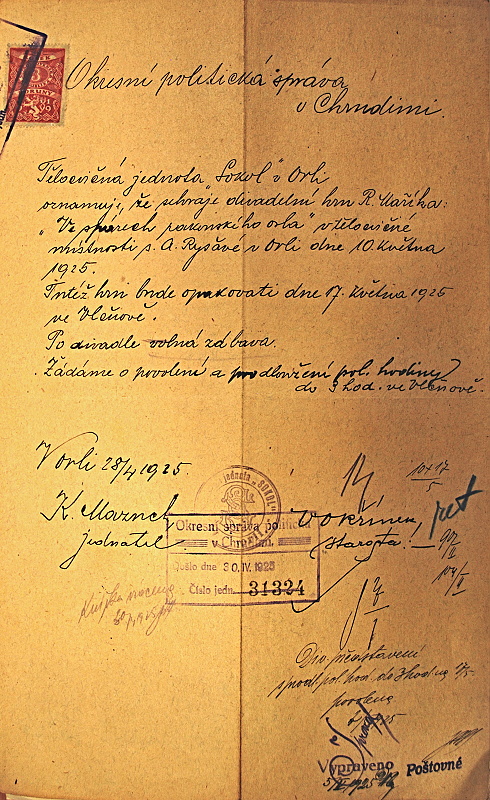 Okresní politická správa
v Chrudimi.
Tělocvičná jednota „Sokol" v Orli
oznamuji, že sehraje divadelní hru R. Maříka:
„Ve spárech rakouského orla" v tělocvičné
místnosti p. A. Ryšavé v Orli dne 10. května
1925.
Tutéž hru bude opakovati dne 17. května 1925
ve Vlčnově.
Po divadle volná zábava.
Žádáme o povolení a prodloužení pol. hodiny
do 3 hod. ve Vlčnově.
V Orli 28/4 1925
jednota „SOKOL"
K. Mazuch
Jednatel
starosta
ret
Okresní správa politická
v Chrudimi.
Došlo dne 30. IV. 1925
Číslo jedn. 31324
Div. představení
s prodl. pol. hod. do 3 hod. na 17/5
povoleno
Vypraveno
Poštovné